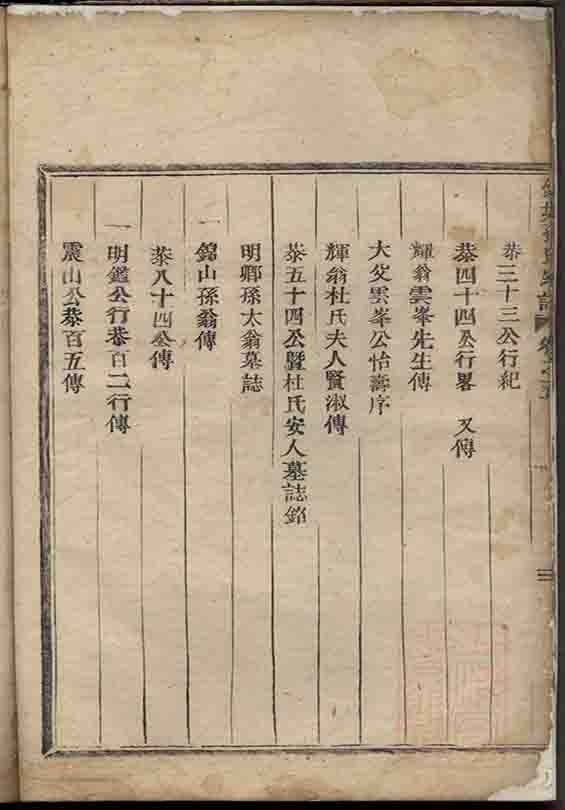 恭三十三公行紀
恭四十四公行畧 又傳
輝翁雲峯先生傳
大父雲峯公怡壽序
輝翁杜氏夫人賢淑傳
恭五十四公暨杜氏安人墓誌銘
明卿孫太翁墓誌
一 錦山孫翁傳
恭八十四公傳
一 明鑑公行恭百二行傳
震山公恭百五傳